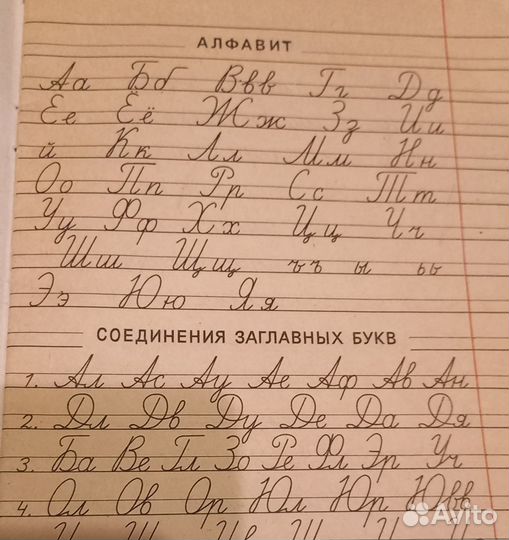 АЛФАВИТ
Аа Бб Ввв Гг Дд
Ее Ёё Жж Зз Ии
й Кк Лл Мм Нн
Оо Пп Рр Сс Тт
Уу Фф Хх Цц Чч
Шш Щщ ъъ ы ьь
Ээ Юю Яя
СОЕДИНЕНИЯ ЗАГЛАВНЫХ БУКВ
1. Ал Ас Ау Ае Аф Ав Ан
2. Дл Дв Ду Де Да Дя
3. Ба Ве Гл Зо Ре Фл Эр Уч
4. Ол Ов Ор Юл Юр Ювв
Avito